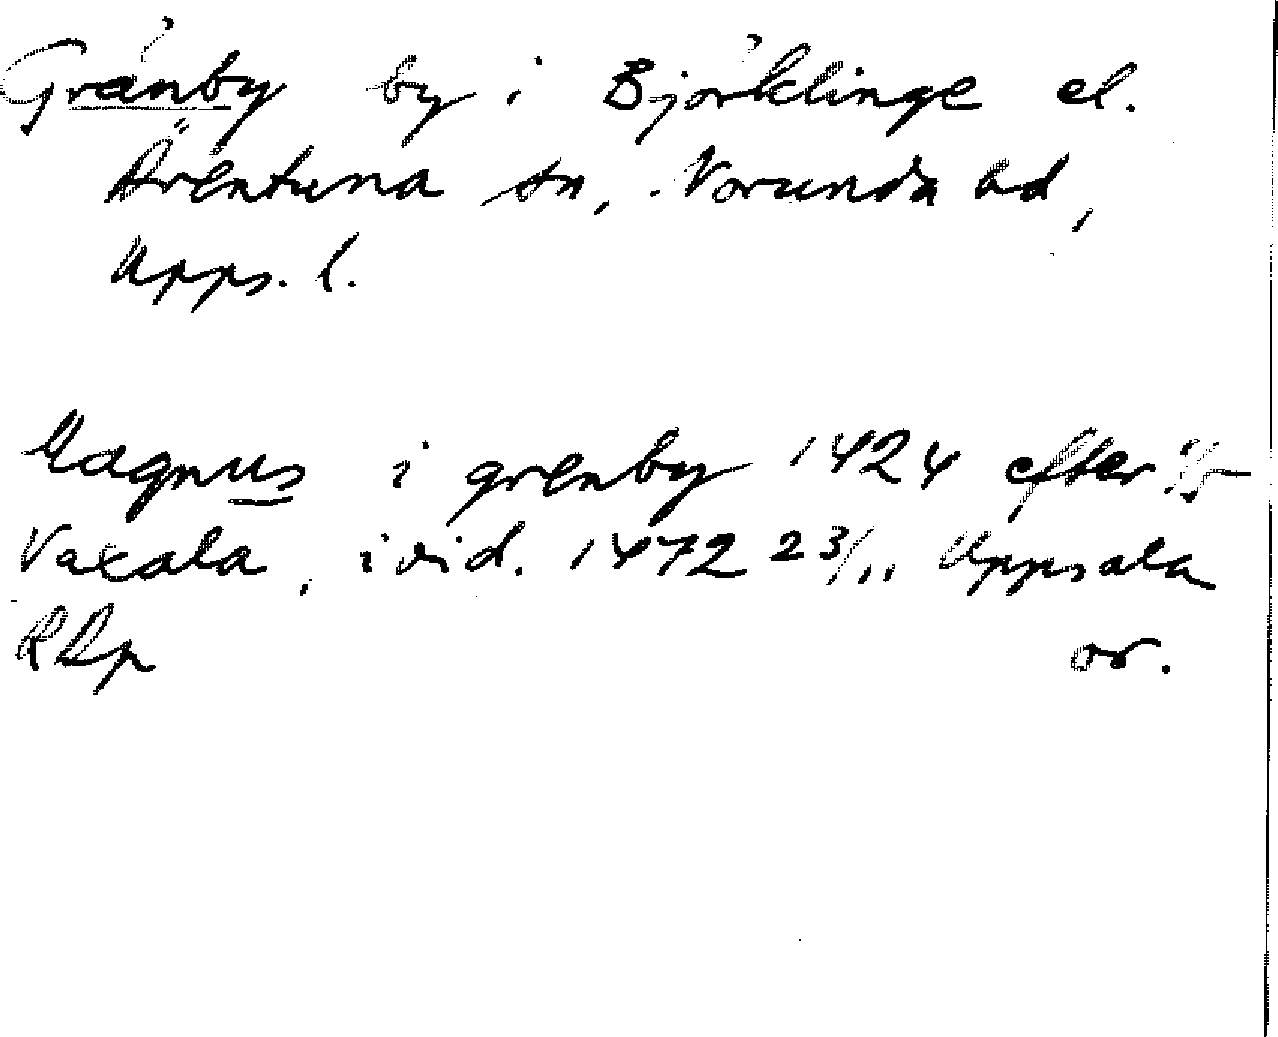 Gränby by i Björklinge el.
Ärentuna sn, Norunda hd,
Upps. l.
Magnus i grenby 1424 efter 1/5
Vaxala, i vid. 1472 23/11 Uppsala
RAp or.